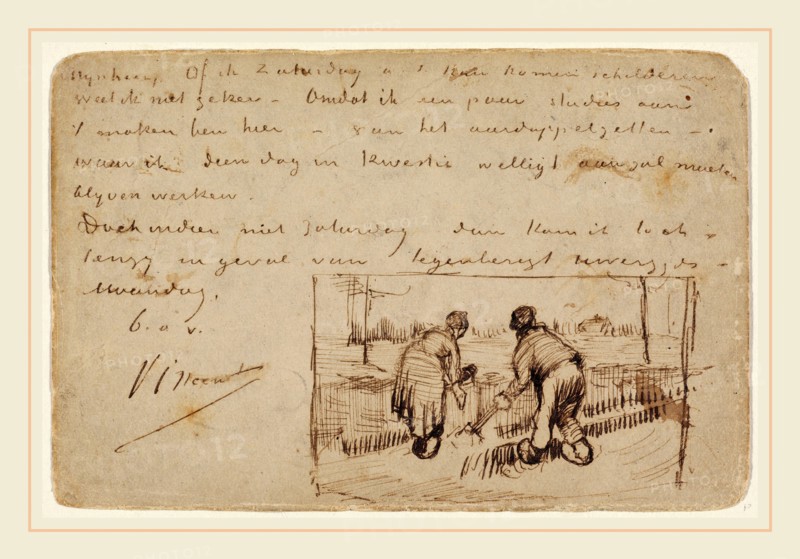 Mynheer, Of ik Zaturdag a. s. kan komen schilderen
weet ik niet zeker – Omdat ik een paar studies aan
't maken ben hier – van het aardappelzetten –
waar ik dien dag in kwestie welligt aan zal moeten
blyven werken.
Doch indien niet Zaturdag dan kom ik toch
tenzy in geval van tegenberigt uwerzyds –
Maandag.
b. a. v.
Vincent